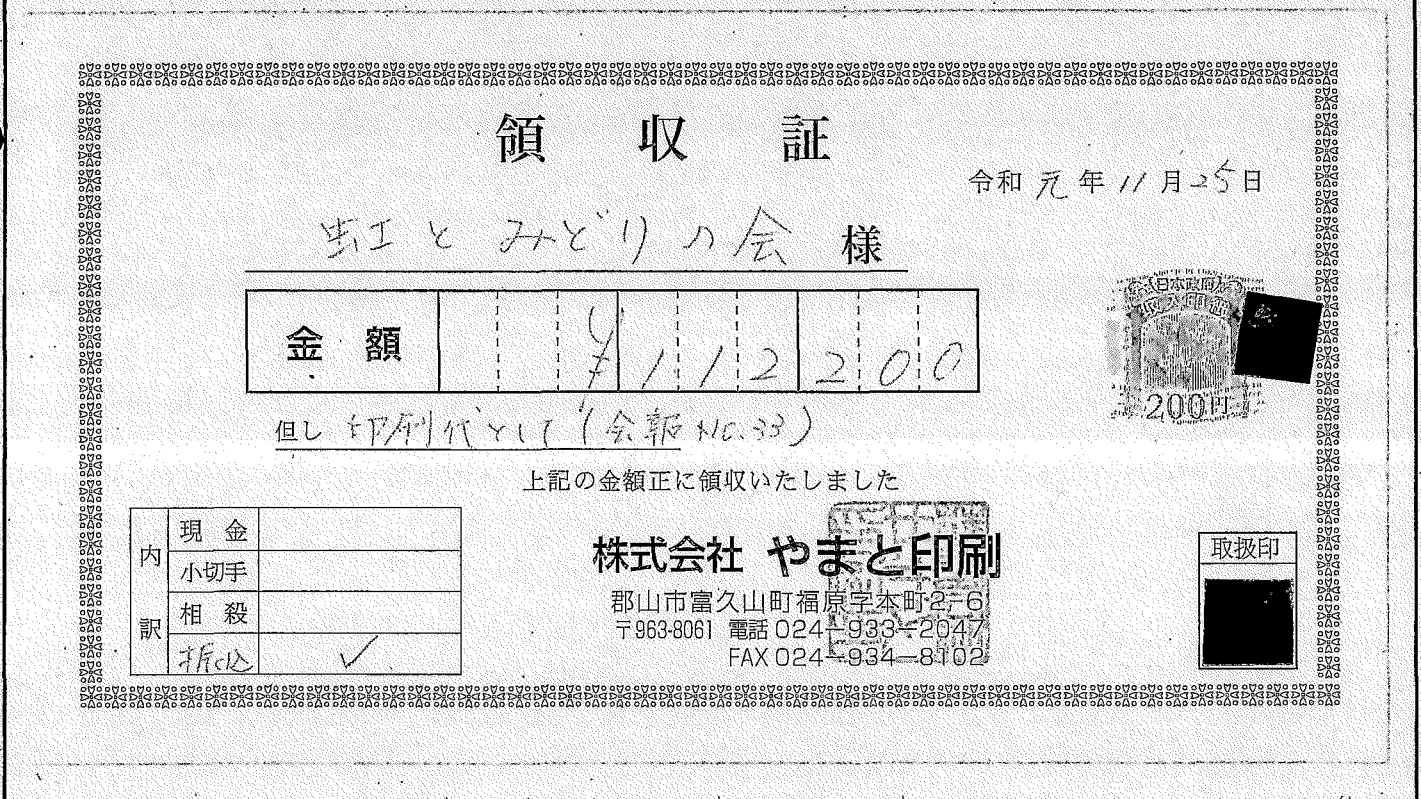 領収証
令和元年11月25日
虹とみどりの会 様
金額 ¥112200
但し 印刷代として(会報No.33)
上記の金額正に領収いたしました
内訳
現金
小切手
相殺
振込 ✓
株式会社 やまと印刷
郡山市富久山町福原字本町2-6
〒963-8061 電話 024-933-2047
FAX 024-934-8102
取扱印
日本政府
収入印紙
200円